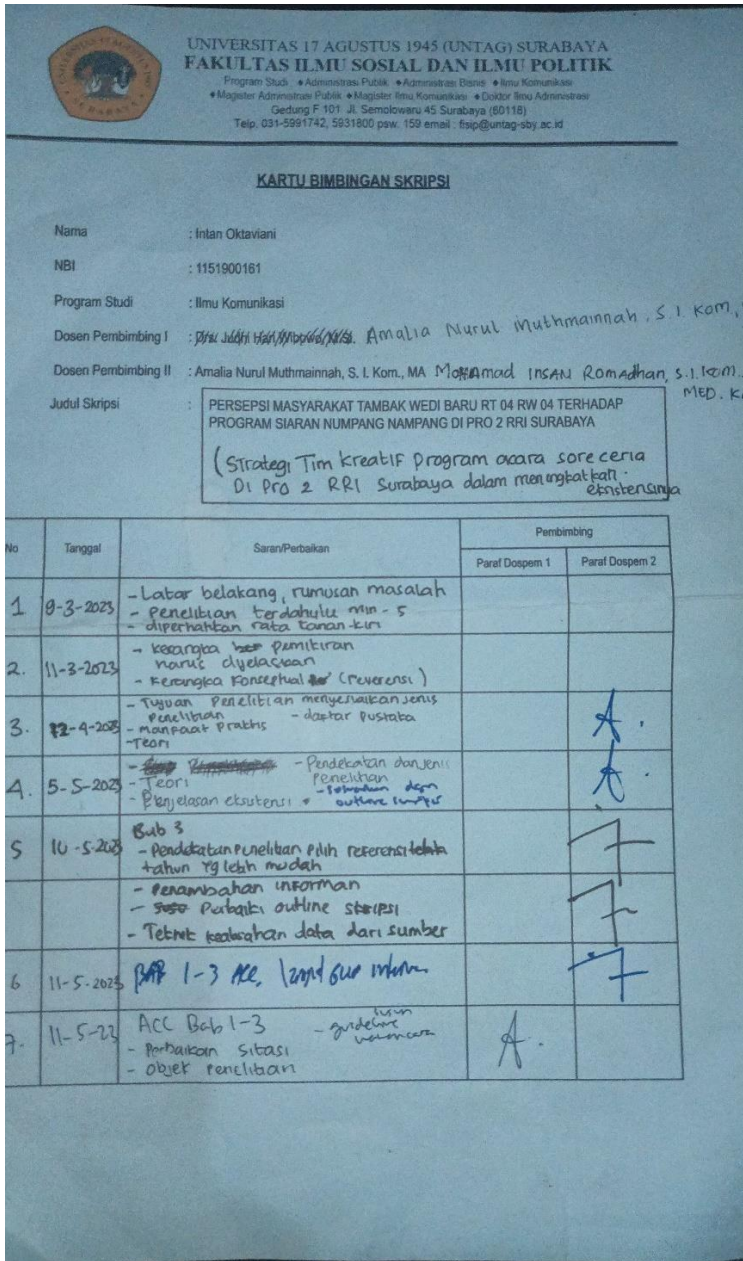 UNIVERSITAS 17 AGUSTUS 1945 (UNTAG) SURABAYA
FAKULTAS ILMU SOSIAL DAN ILMU POLITIK
Program Studi ♦Administrasi Publik ♦Administrasi Bisnis ♦Ilmu Komunikasi
♦Magister Administrasi Publik ♦Magister Ilmu Komunikasi ♦Doktor Ilmu Administrasi
Gedung F 101 Jl. Semolowaru 45 Surabaya (60118)
Telp. 031-5991742, 5931800 psw. 159 email : fisip@untag-sby.ac.id
KARTU BIMBINGAN SKRIPSI
Nama : Intan Oktaviani
NBI : 1151900161
Program Studi : Ilmu Komunikasi
Dosen Pembimbing I : Amalia Nurul Muthmainnah, S. I. Kom,
Dosen Pembimbing II : Amalia Nurul Muthmainnah, S. I. Kom., MA Mohamad Insan Romadhan, S.I.Kom.
MED. K
Judul Skripsi : PERSEPSI MASYARAKAT TAMBAK WEDI BARU RT 04 RW 04 TERHADAP
PROGRAM SIARAN NUMPANG NAMPANG DI PRO 2 RRI SURABAYA
(Strategi Tim Kreatif Program acara sore ceria
Di Pro 2 RRI Surabaya dalam meningkatkan
eksistensinya
No Tanggal Saran/Perbaikan Pembimbing
Paraf Dospem 1 Paraf Dospem 2
1 9-3-2023 - Latar belakang, rumusan masalah
- Penelitian terdahulu min - 5
- diperhatikan rata kanan-kiri
2. 11-3-2023 - kerangka pemikiran
harus dijelaskan
- Kerangka Konseptual (reverensi)
3. 12-4-2023 - Tujuan Penelitian menyesuaikan jenis
Penelitian - daftar Pustaka
- manpaat Praktis
- Teori
4. 5-5-2023 - Pendekatan dan jenis
Penelitian
- Teori
- Penjelasan eksistensi
5 10-5-2023 Bab 3
- Pendekatan penelitian pilih referensi
tahun yg lebih mudah
- Penambahan informan
- Perbaiki outline skripsi
- Teknik keabsahan data dari sumber
6 11-5-2023 BAB 1-3 Acc,
7. 11-5-23 ACC Bab 1-3 - guideline
wawancara
- Perbaikan sitasi
- objek penelitian